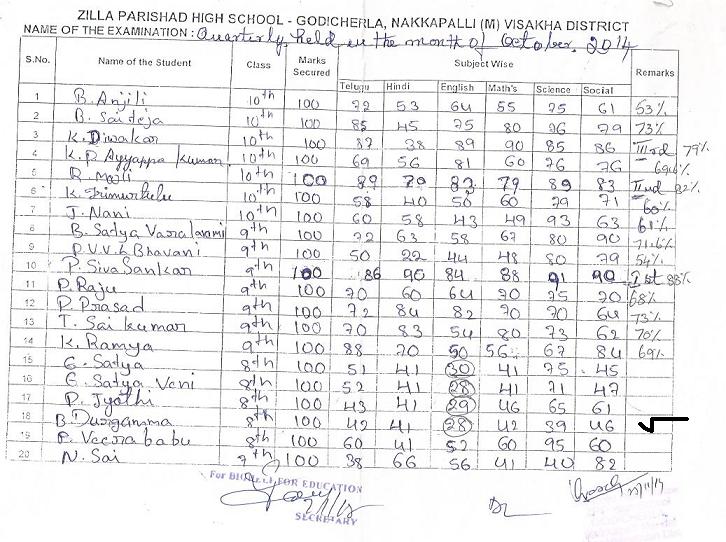 ZILLA PARISHAD HIGH SCHOOL - GODICHERLA, NAKKAPALLI (M) VISAKHA DISTRICT
NAME OF THE EXAMINATION : Quarterly, held in the month of October, 2014
S.No. Name of the Student Class Marks Secured Subject Wise Remarks
Telugu Hindi English Math's Science Social
1 B. Anjili 10th 100 72 53 64 55 75 61 63%
2 B. Sai teja 10th 100 85 45 75 80 76 79 73%
3 K. Diwakar 10th 100 87 38 89 90 85 86 IIIrd 79%
4 K. P. Ayyappa Kumar 10th 100 69 56 81 60 76 76 69.6%
5 R. 10th 100 89 79 83 79 89 83 IInd 82%
6 K. 10th 100 58 40 50 60 79 71 60%
7 J. Nani 10th 100 60 58 43 49 93 63 61%
8 B. Satya 9th 100 72 63 58 67 80 90 71.6%
9 P.V.V.L Bhavani 9th 100 50 22 44 48 80 79 54%
10 P. Siva Sankar 9th 100 86 90 84 88 91 90 Ist 88%
11 P. Raju 9th 100 70 60 64 70 75 70 68%
12 P. Prasad 9th 100 72 84 82 70 70 64 73%
13 T. Sai kumar 9th 100 70 83 54 80 73 62 70%
14 K. Ramya 9th 100 88 70 50 56 67 84 69%
15 G. Satya 8th 100 51 41 30 41 75 45
16 G. Satya Veni 8th 100 52 41 28 41 71 47
17 P. Jyothi 8th 100 43 41 29 46 65 61
18 B. Durgamma 8th 100 42 41 28 42 39 46
19 P. Veera babu 8th 100 60 41 52 60 95 60
20 N. Sai 7th 100 38 66 56 41 40 82
For FOR EDUCATION
SECRETARY